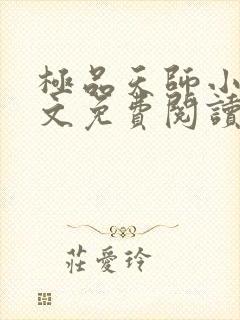 極品天師小
文免費閱讀
莊愛玲